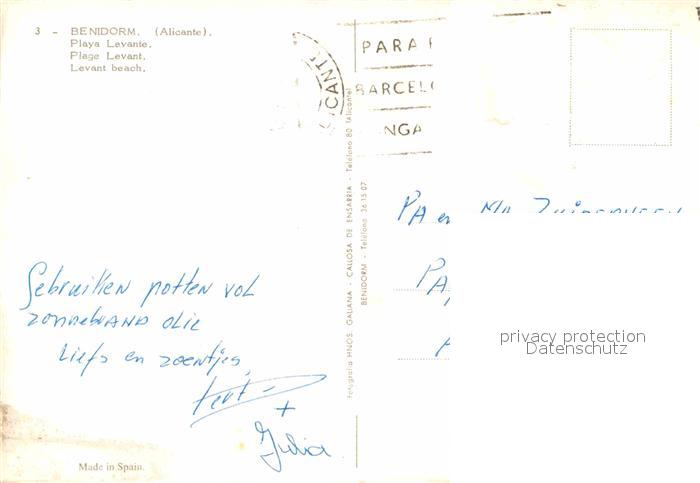 3 - BENIDORM. (Alicante).
Playa Levante.
Plage Levant.
Levant beach.
ICANTE
PARA
BARCEL
NGA
Fotografía HNOS. GALIANA - CALLOSA DE ENSARRIA - Teléfono 80 (Alicante)
BENIDORM - Teléfono 36-15-07
PA en
PA
Gebruiken potten vol
zonnebrand olie
Liefs en zoentjes,
+
Julia
privacy protection
Datenschutz
Made in Spain.